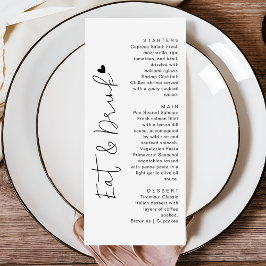 Eat & Drink
STARTERS
Caprese Salad Fresh
mozzarella, ripe
tomatoes, and basil,
drizzled with
balsamic glaze.
Shrimp Cocktail
Chilled shrimp served
with a zesty cocktail
sauce.
MAIN
Pan Seared Salmon
Fresh salmon fillet
with a lemon dill
sauce, accompanied
by wild rice and
sautéed spinach.
Vegetarian Pasta
Primavera: Seasonal
vegetables tossed
with penne pasta in a
light garlic olive oil
sauce.
DESSERT
Tiramisu: Classic
Italian dessert with
layers of coffee
soaked,
Brownies | Cupcakes